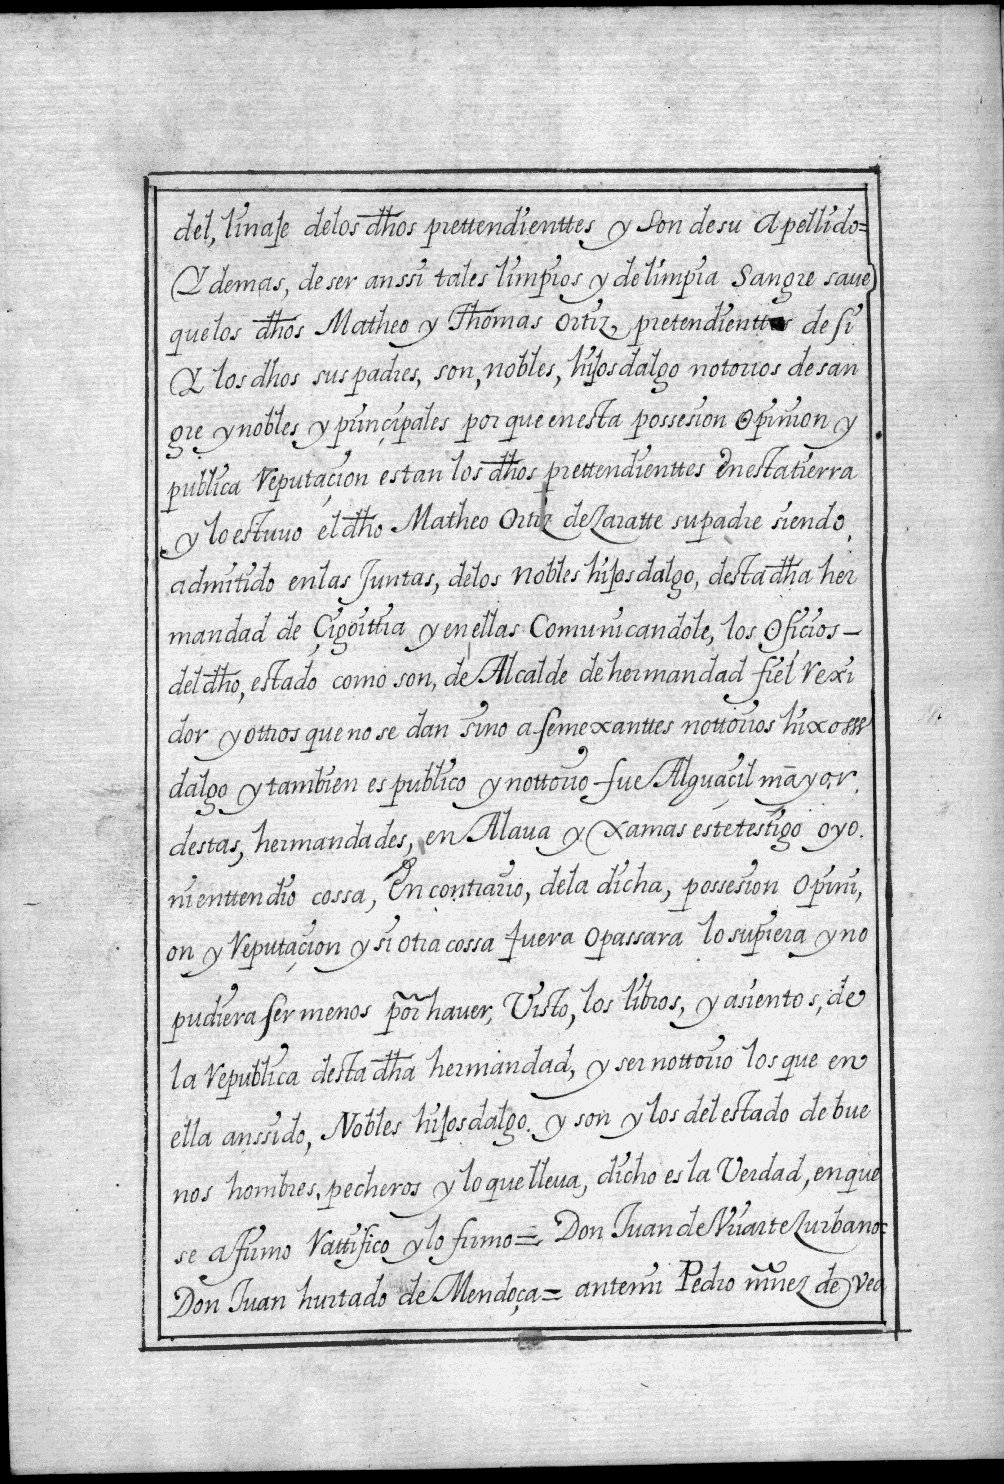 del, linaje delos dhos prettendienttes y son desu Apellido=
Y demas, de ser anssi tales limpios y de limpia Sangre saue
que los dhos Matheo y Thomas Ortiz, pretendienttes de si
Y los dhos sus padres, son, nobles, hijosdalgo notorios de san
gre y nobles y prinçipales por que enesta possesion Opinion y
publica Reputaçion estan los dhos prettendienttes Enestatierra
y lo estuuo el dho Matheo Ortiz de Zaratte su padre siendo
admitido enlas Juntas, delos Nobles hijosdalgo, desta dha her
mandad de Çigoittia y enellas Comunicandole, los Oficios-
del dho, estado como son, de Alcalde de hermandad fiel Rexi
dor y ottros que no se dan sino a semexanttes nottorios hixos
dalgo y tambien es publico y nottorio fue Alguaçil mayor.
destas, hermandades, en Alaua y Xamas este testigo oyo.
ni enttendio cossa, En contrario, dela dicha, possesion Opini,
on y Reputaçion y si otra cossa fuera O passara lo supiera y no
pudiera ser menos por hauer, Visto, los libros, y asientos, de
la Republica desta dha hermandad, y ser nottorio los que en
ella an ssido, Nobles hijosdalgo. y son y los del estado de bue
nos hombres, pecheros y lo que lleua, dicho es la Verdad, en que
se afirmo Rattifico y lo firmo= Don Juan de Vriarte Zurbano=
Don Juan hurtado de Mendoça= antemi Pedro nuñez de Vea